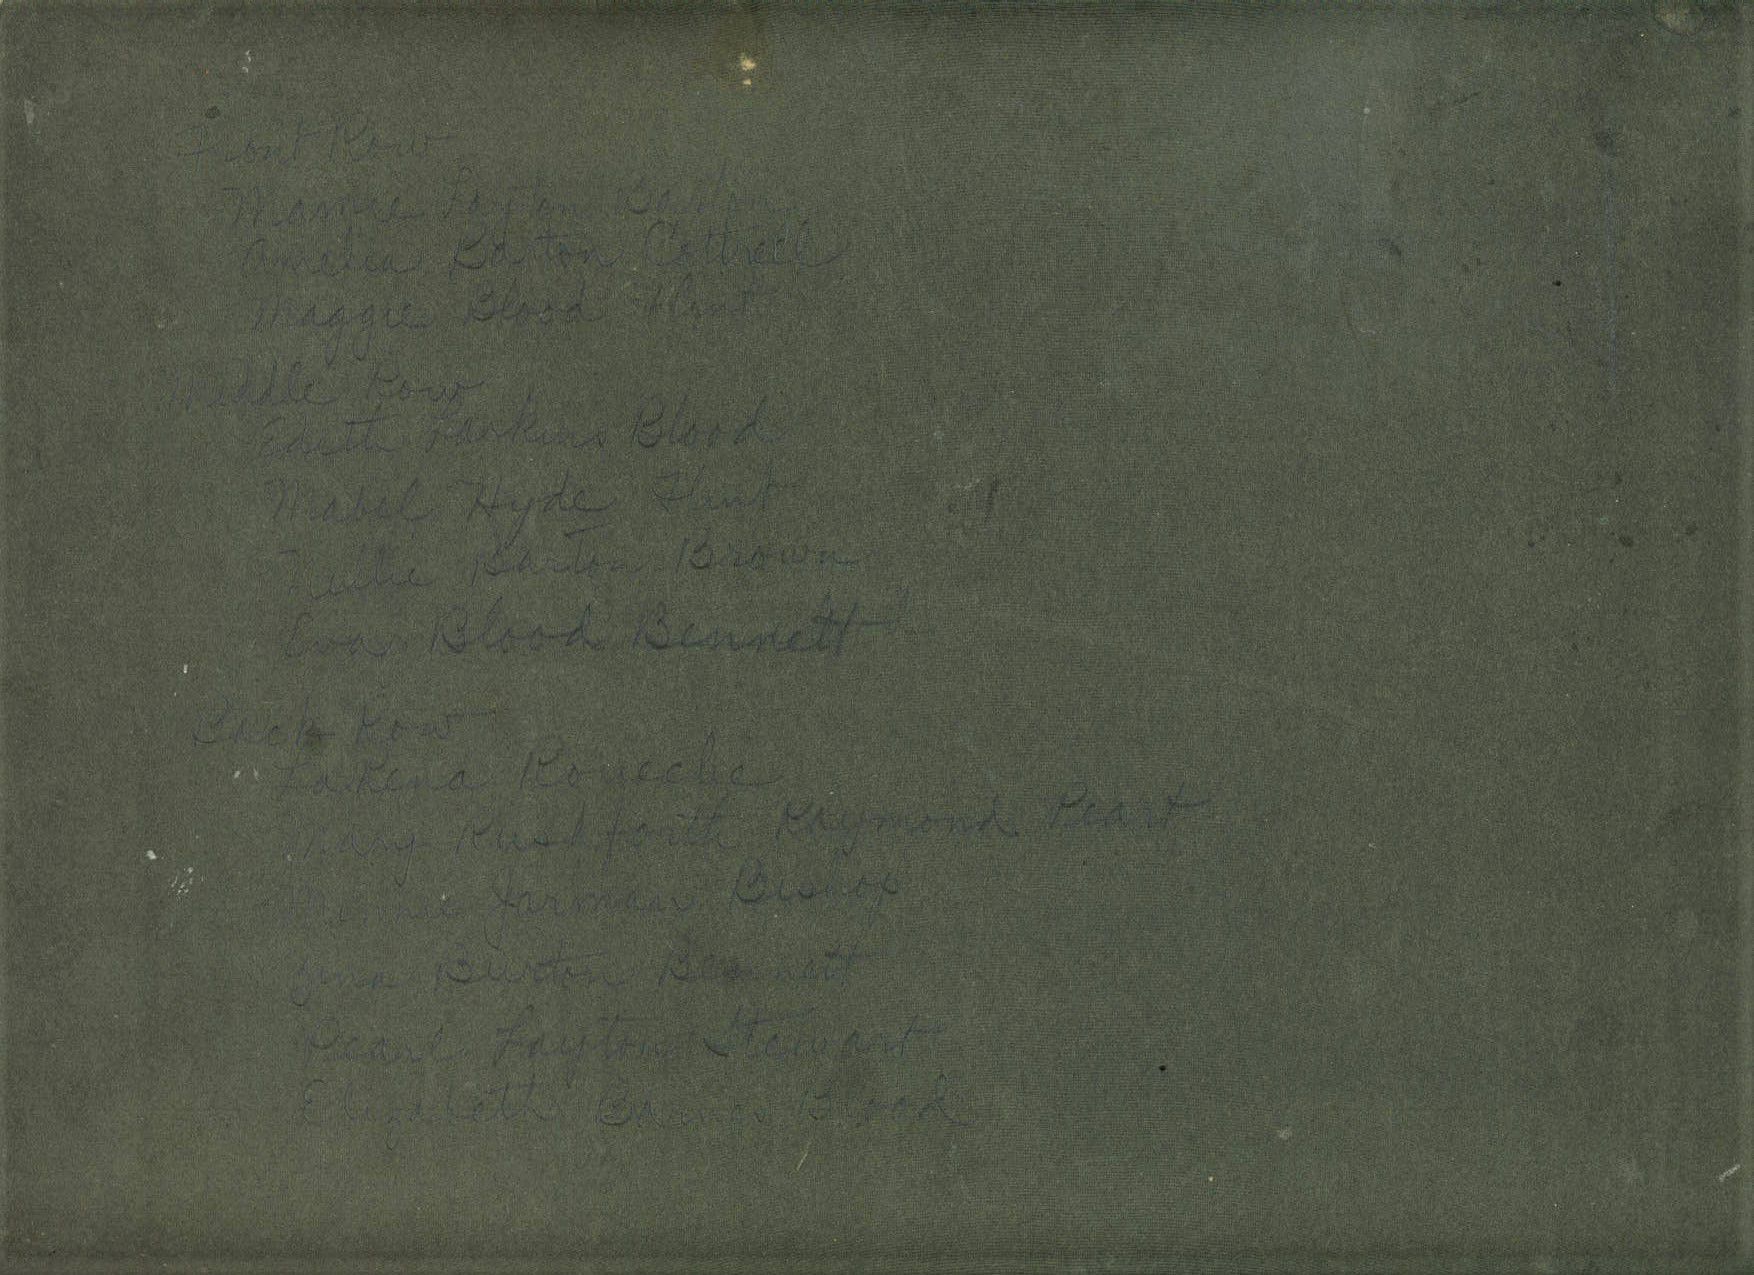 Front Row
Mamie Layton Barton
Amelia Barton Cottrell
Maggie Blood Flint
Middle Row
Edith Parkins Blood
Mabel Hyde Flint
Barton Brown
Eva Blood Bennett
Back Row
LaRena Roueche
Mary Rushforth Raymond Peart
Minnie Jarman Bishop
Burton Bennett
Pearl Layton Stewart
Elizabeth Barnes Blood